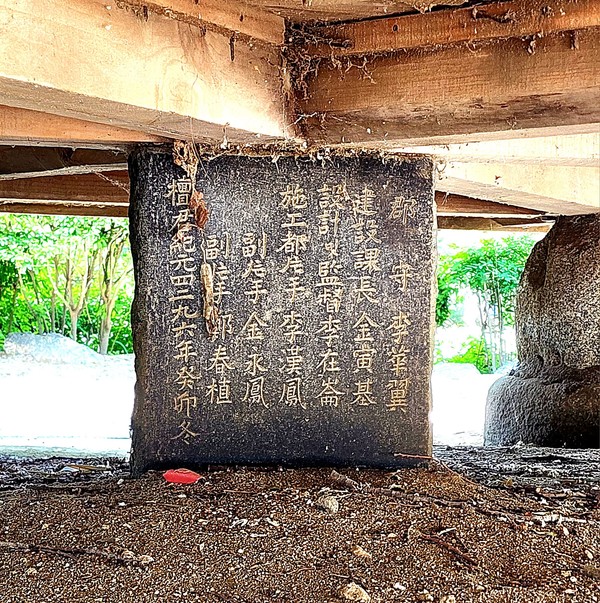 郡守 李 翼
建設課長 金寅基
設計및監督 李在崙
施工都片手 李漢鳳
副片手 金永鳳
副片手 鄭春植
檀君紀元四二九六年 癸卯冬